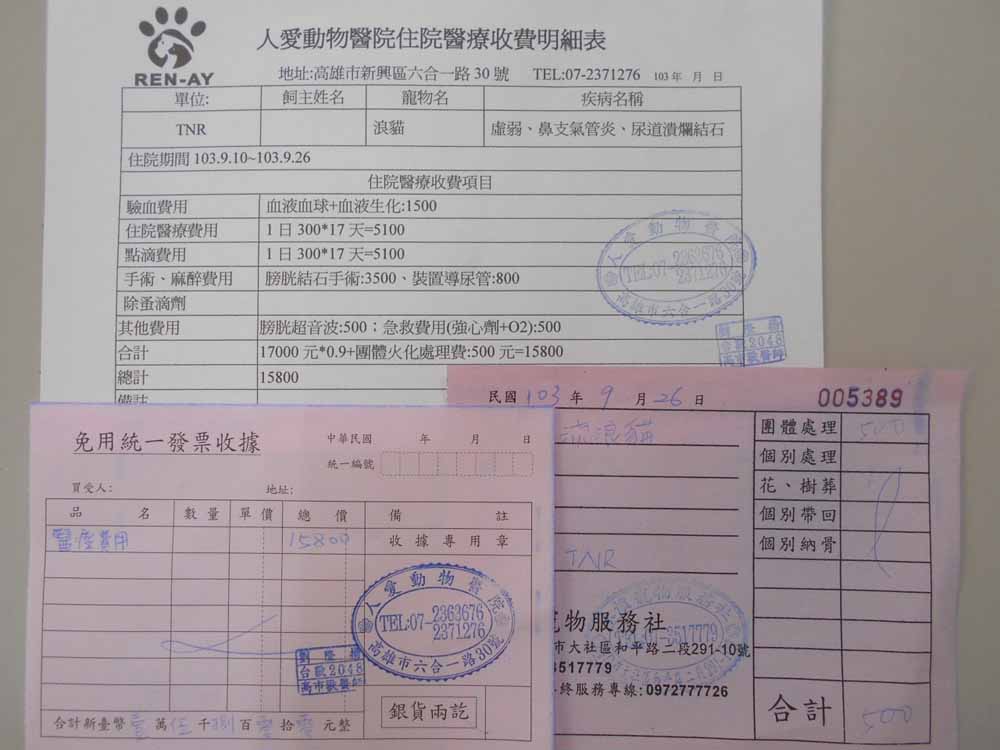 REN-AY
人愛動物醫院住院醫療收費明細表
地址:高雄市新興區六合一路 30 號 TEL:07-2371276 103 年 月 日
單位: 飼主姓名 寵物名 疾病名稱
TNR 浪貓 虛弱、鼻支氣管炎、尿道潰爛結石
住院期間 103.9.10~103.9.26
住院醫療收費項目
驗血費用 血液血球+血液生化:1500
住院醫療費用 1 日 300*17 天=5100
點滴費用 1 日 300*17 天=5100
手術、麻醉費用 膀胱結石手術:3500、裝置導尿管:800
除蚤滴劑
其他費用 膀胱超音波:500；急救費用(強心劑+O2):500
合計 17000 元*0.9+團體火化處理費:500 元=15800
總計 15800
備註
人愛動物醫院
TEL:07-2363676
2371276
高雄市六合一路
2048
民國 103 年 9 月 26 日 005389
流浪貓
團體處理 500
個別處理
花、樹葬
個別帶回
個別納骨
TNR
物服務社
市大社區和平路二段291-10號
3517779
終服務專線:0972777726
合計 500
免用統一發票收據
中華民國 年 月 日
統一編號
買受人: 地址:
品名 數量 單價 總價 備註
醫療費用 15800 收據專用章
人愛動物醫院
TEL:07-2363676
2371276
高雄市六合一路30號
台獸2048
高市獸醫師
合計新臺幣壹萬伍千捌百零拾零元整
銀貨兩訖